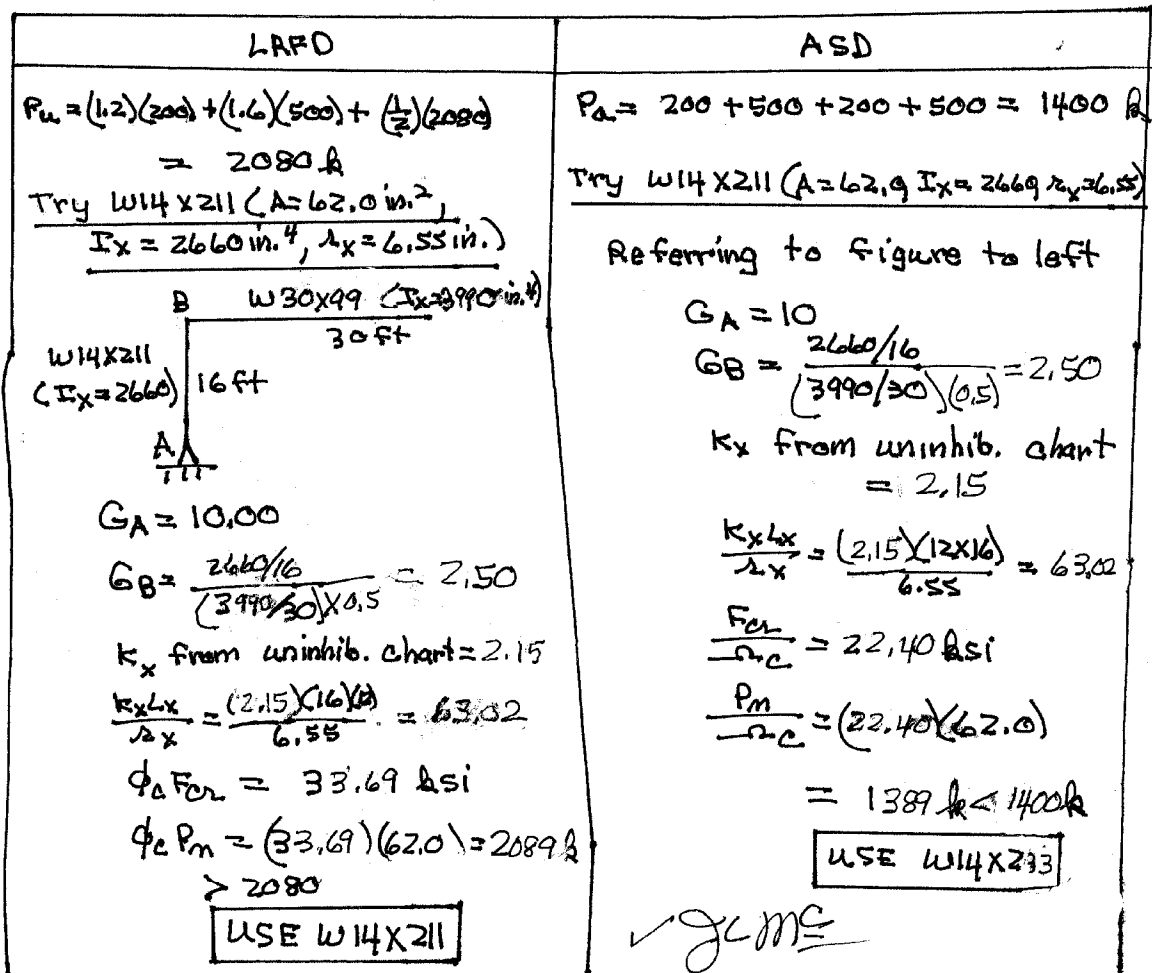 LRFD
Pu = (1.2)(200) + (1.6)(500) + (1/2)(2080)
= 2080 k
Try W14 X 211 (A = 62.0 in.²,
Ix = 2660 in.⁴, rx = 6.55 in.)
B W30X99 (Ix=3990 in.⁴)
30 ft
W14X211
(Ix=2660)
16 ft
A
GA = 10.00
GB = 2660/16 / (3990/30)X0.5 = 2.50
Kx from uninhib. chart = 2.15
KxLx/rx = (2.15)(16)(12)/6.55 = 63.02
ϕcFcr = 33.69 ksi
ϕcPn = (33.69)(62.0) = 2089 k
> 2080
USE W14X211
ASD
Pa = 200 + 500 + 200 + 500 = 1400 k
Try W14X211 (A=62.0, Ix=2660, rx=6.55)
Referring to figure to left
GA = 10
GB = 2660/16 / (3990/30)(0.5) = 2.50
Kx from uninhib. chart
= 2.15
KxLx/rx = (2.15)(12X16)/6.55 = 63.02
Fcr/Ωc = 22.40 ksi
Pn/Ωc = (22.40)(62.0)
= 1389 k < 1400 k
USE W14X233
✓ JCMC